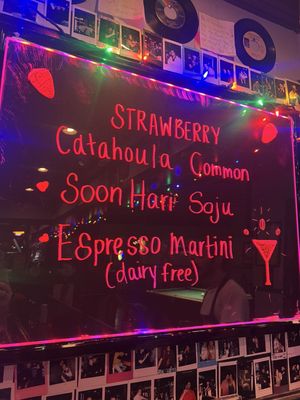 STRAWBERRY
Catahoula Common
Soon Hari Soju
Espresso Martini
(dairy free)